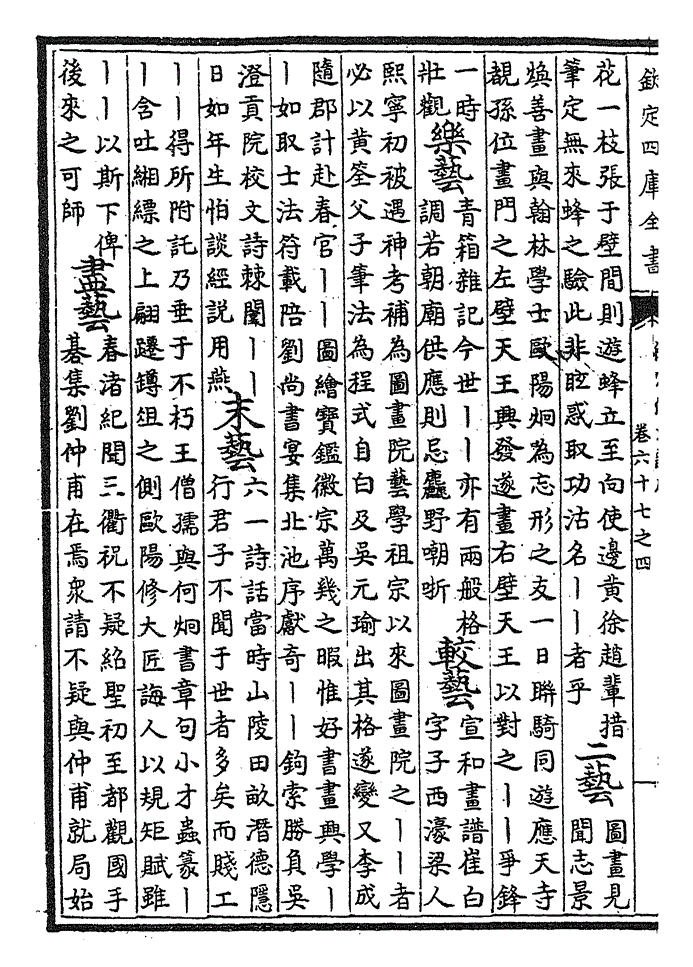 欽定四庫全書
卷六十七之四
花一枝張于壁間則遊蜂立至向使邊黃徐趙軰措
筆定無來蜂之驗此非眩惑取功沽名丨丨者乎
二藝
圖畫見
聞志景
煥善畫與翰林學士歐陽炯為忘形之友一日聯騎同遊應天寺
覩孫位畫門之左壁天王興發遂畫右壁天王以對之丨丨爭鋒
一時
壯觀
樂藝
青箱雜記今世丨丨亦有兩般格
調若朝廟供應則忌麤野嘲哳
較藝
宣和畫譜崔白
字子西濠梁人
熙寧初被遇神考補為圖畫院藝學祖宗以來圖畫院之丨丨者
必以黃筌父子筆法為程式自白及吳元瑜出其格遂變又李成
隨郡計赴春官丨丨圖繪寶鑑徽宗萬幾之暇惟好書畫興學丨
丨如取士法符載陪劉尚書宴集北池序獻奇丨丨鉤索勝負吳
澄貢院校文詩棘闈丨丨
日如年生怕談經説用燕
末藝
六一詩話當時山陵田畝潛德隱
行君子不聞于世者多矣而賤工
丨丨得所附託乃垂于不朽王僧孺與何炯書章句小才蟲篆丨
丨含吐緗縹之上翩躚鐏俎之側歐陽修大匠誨人以規矩賦雖
丨丨以斯下俾
後來之可師
盡藝
春渚紀聞三衢祝不疑紹聖初至都觀國手
棊集劉仲甫在焉衆請不疑與仲甫就局始